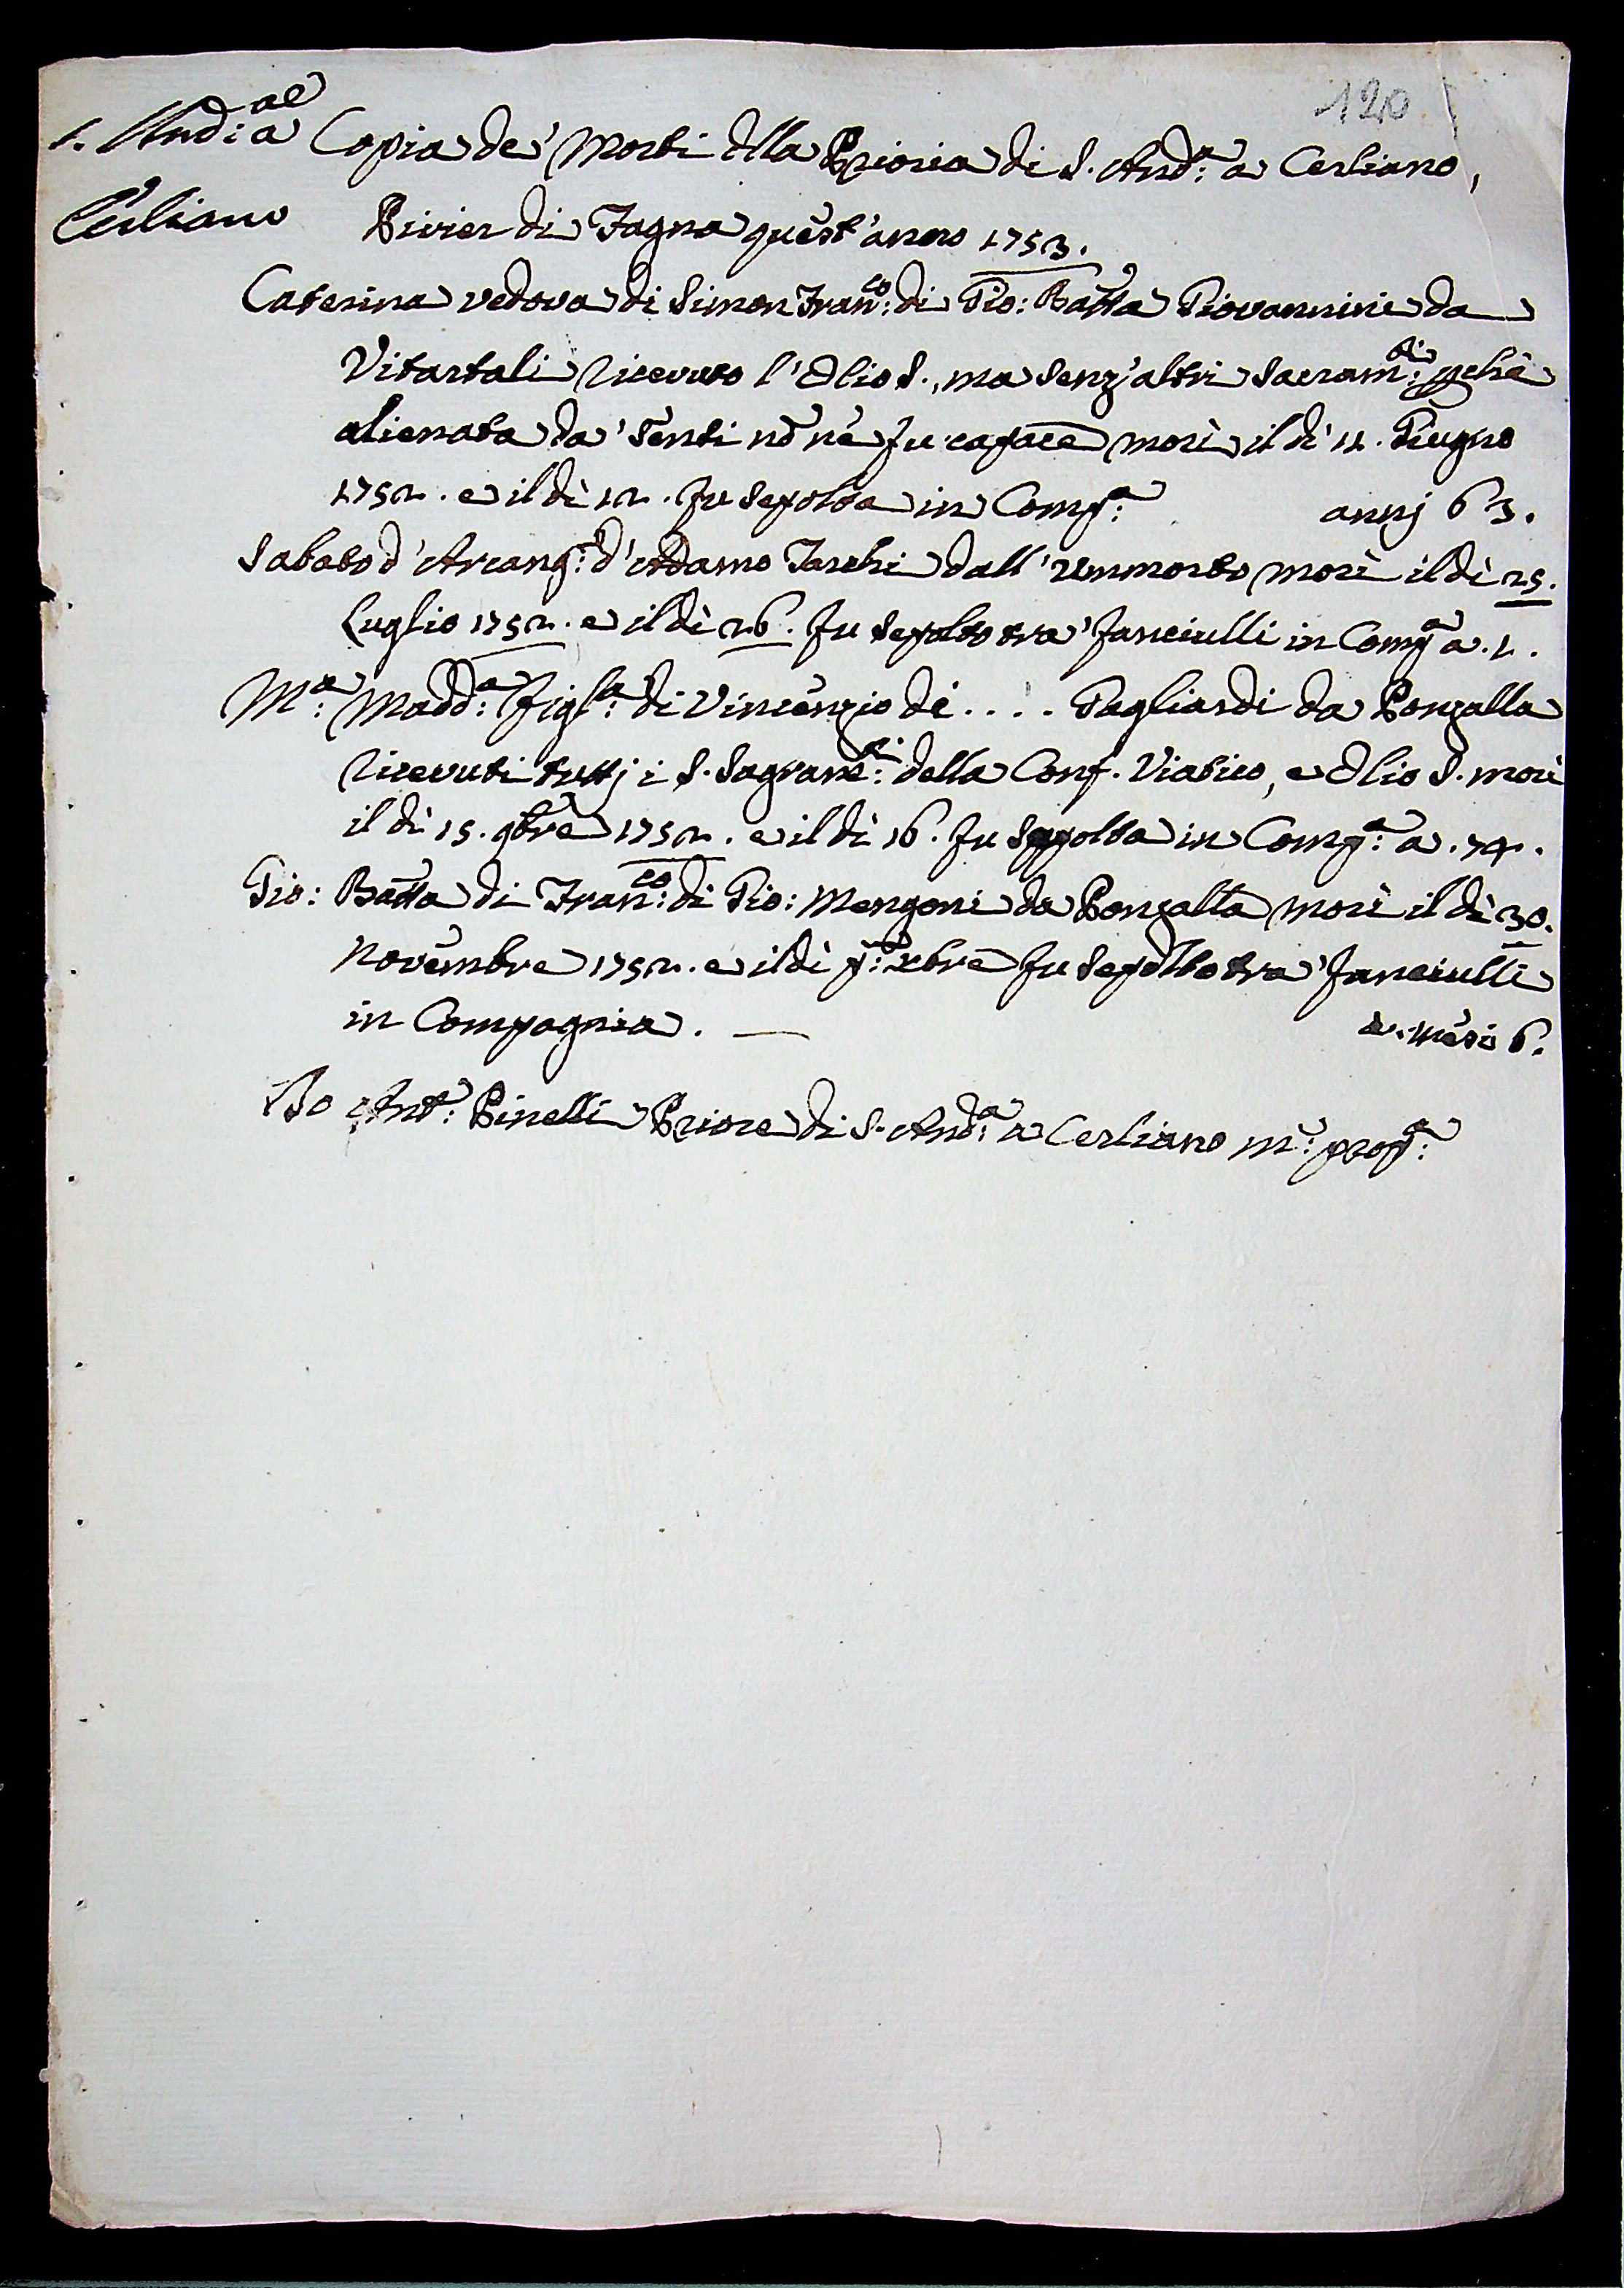 120
S. And:a a
Cerliano
Copia de' Morti dlla Prioria di S. And:a a Cerliano,
Pivier di Fagna quest'anno 1753.
Caterina vedova di Simon Fran:co di Gio: Batta Giovannini da
Vitartali ricevuto l'Olio S., ma senz'altri Sacram:ti pchè
alienata da' sensi nō nē fu capace morì il dì 11. Giugno
1752. e il dì 12. fu sepolta in Comp:a annj 63.
Sabato d'Arcang:o d'Adamo Taschi dall'Ummorto morì il dì 25.
Luglio 1752. e il dì 26. fu sepolto tra' fanciulli in Comp:a a. 1.
M:a Madd:a figl:a di Vincenzio di .... Gagliardi da Ponzalla
ricevuti tuttj i S. Sagram:ti della Conf. Viatico, e Olio S. morì
il dì 15. 9bre 1752. e il dì 16. fu sepolta in Comp:a a. 74.
Gio: Batta di Fran:co di Gio: Mengoni da Ponzalla morì il dì 30.
Novembre 1752. e il dì p:o xbre fu sepolto tra' fanciulli
in Compagnia. — mesi 6.
Io Ant:o Pinelli Priore di S. And:a a Cerliano m:o prop:a